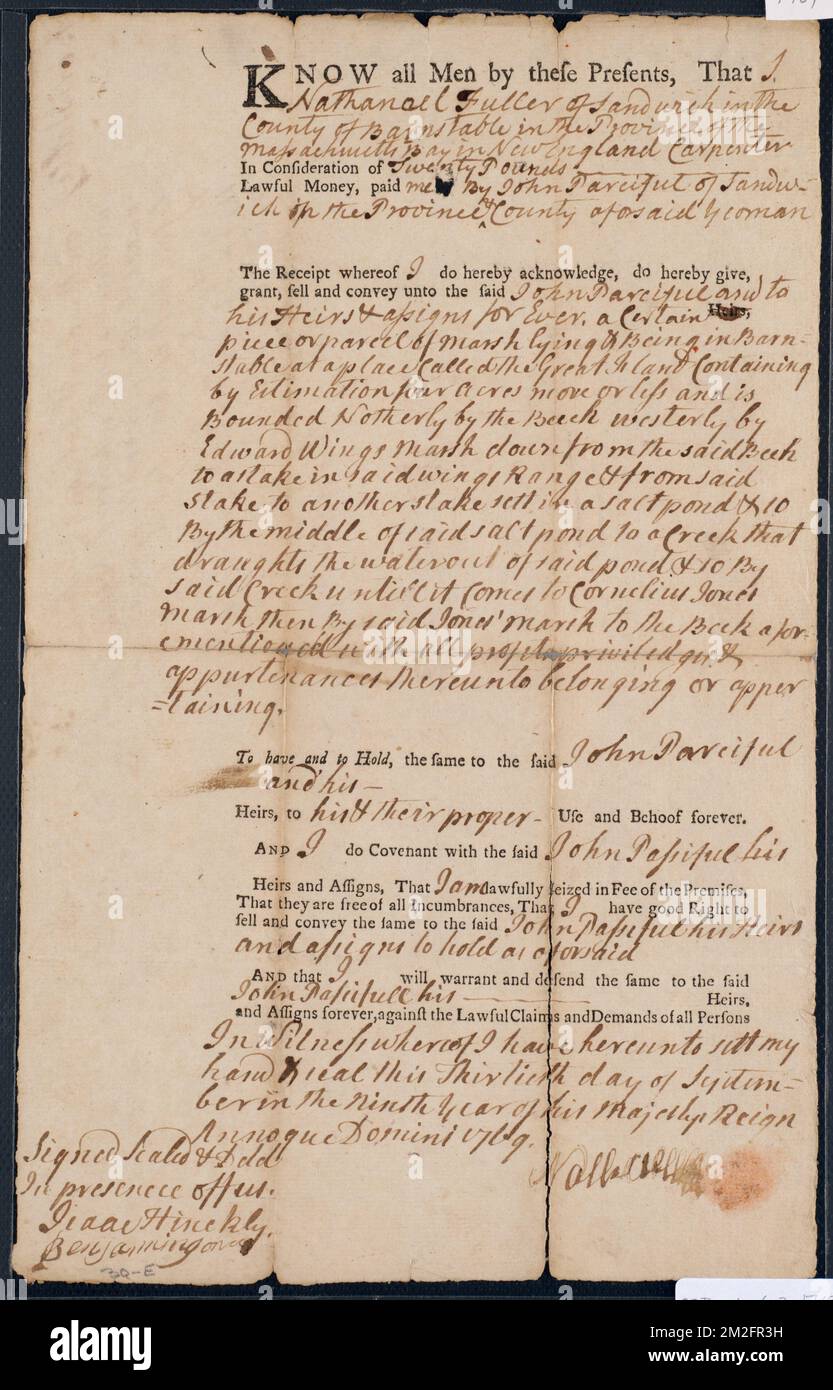 KNOW all Men by theſe Preſents, That I.
Nathanael Fuller of Sandwich in the
County of Barnstable in the Province of the
Massachusetts Bay in New England Carpenter
In Conſideration of Twenty Pounds
Lawful Money, paid me By John Parciful of Sandw-
ich in the Province & County aforsaid yeoman
The Receipt whereof I do hereby acknowledge, do hereby give,
grant, ſell and convey unto the ſaid John Parciful and to
Heirs,
his Heirs & assigns for Ever. a Certain
piece or parcel of marsh lying & Being in Barn-
stable at a place Called the Great Island Containing
by Estimation four acres more or less and is
Bounded Notherly by the Beech westerly by
Edward Wings marsh down from the said Beek
to a stake in said wings Range & from said
stake to another stake sett in a salt pond & so
By the middle of said salt pond to a Creek that
draughts the water out of said pond & so By
said Creek untill it Comes to Cornelius Jones
marsh then By said Jones' marsh to the Beek afor-
ementioned with all priviledges &
appurtenances thereunto belonging or apper
=taining.
To have and to Hold, the ſame to the ſaid John Parciful
and his —
Heirs, to his & their proper - Uſe and Behoof forever.
AND I do Covenant with the ſaid John Passiful his
Heirs and Aſſigns, That I am lawfully ſeized in Fee of the Premiſes,
That they are free of all Incumbrances, That I have good Right to
ſell and convey the ſame to the ſaid John Passiful his Heirs
and assigns to hold as aforsaid
AND that I will warrant and defend the ſame to the ſaid
John Passifull his — Heirs,
and Aſſigns forever, againſt the Lawful Claims and Demands of all Perſons
In Witness whereof I have hereunto sett my
hand & seal this Thirtieth day of Septem-
ber in the Ninth Year of his Majestys Reign
Annoque Domini 1769.
Signed Sealed & Deld
In presence off us.
Isaac Hinckly.
Benjamin Jones
30-E
alamy
Image ID: 2M2FR3H
www.alamy.com